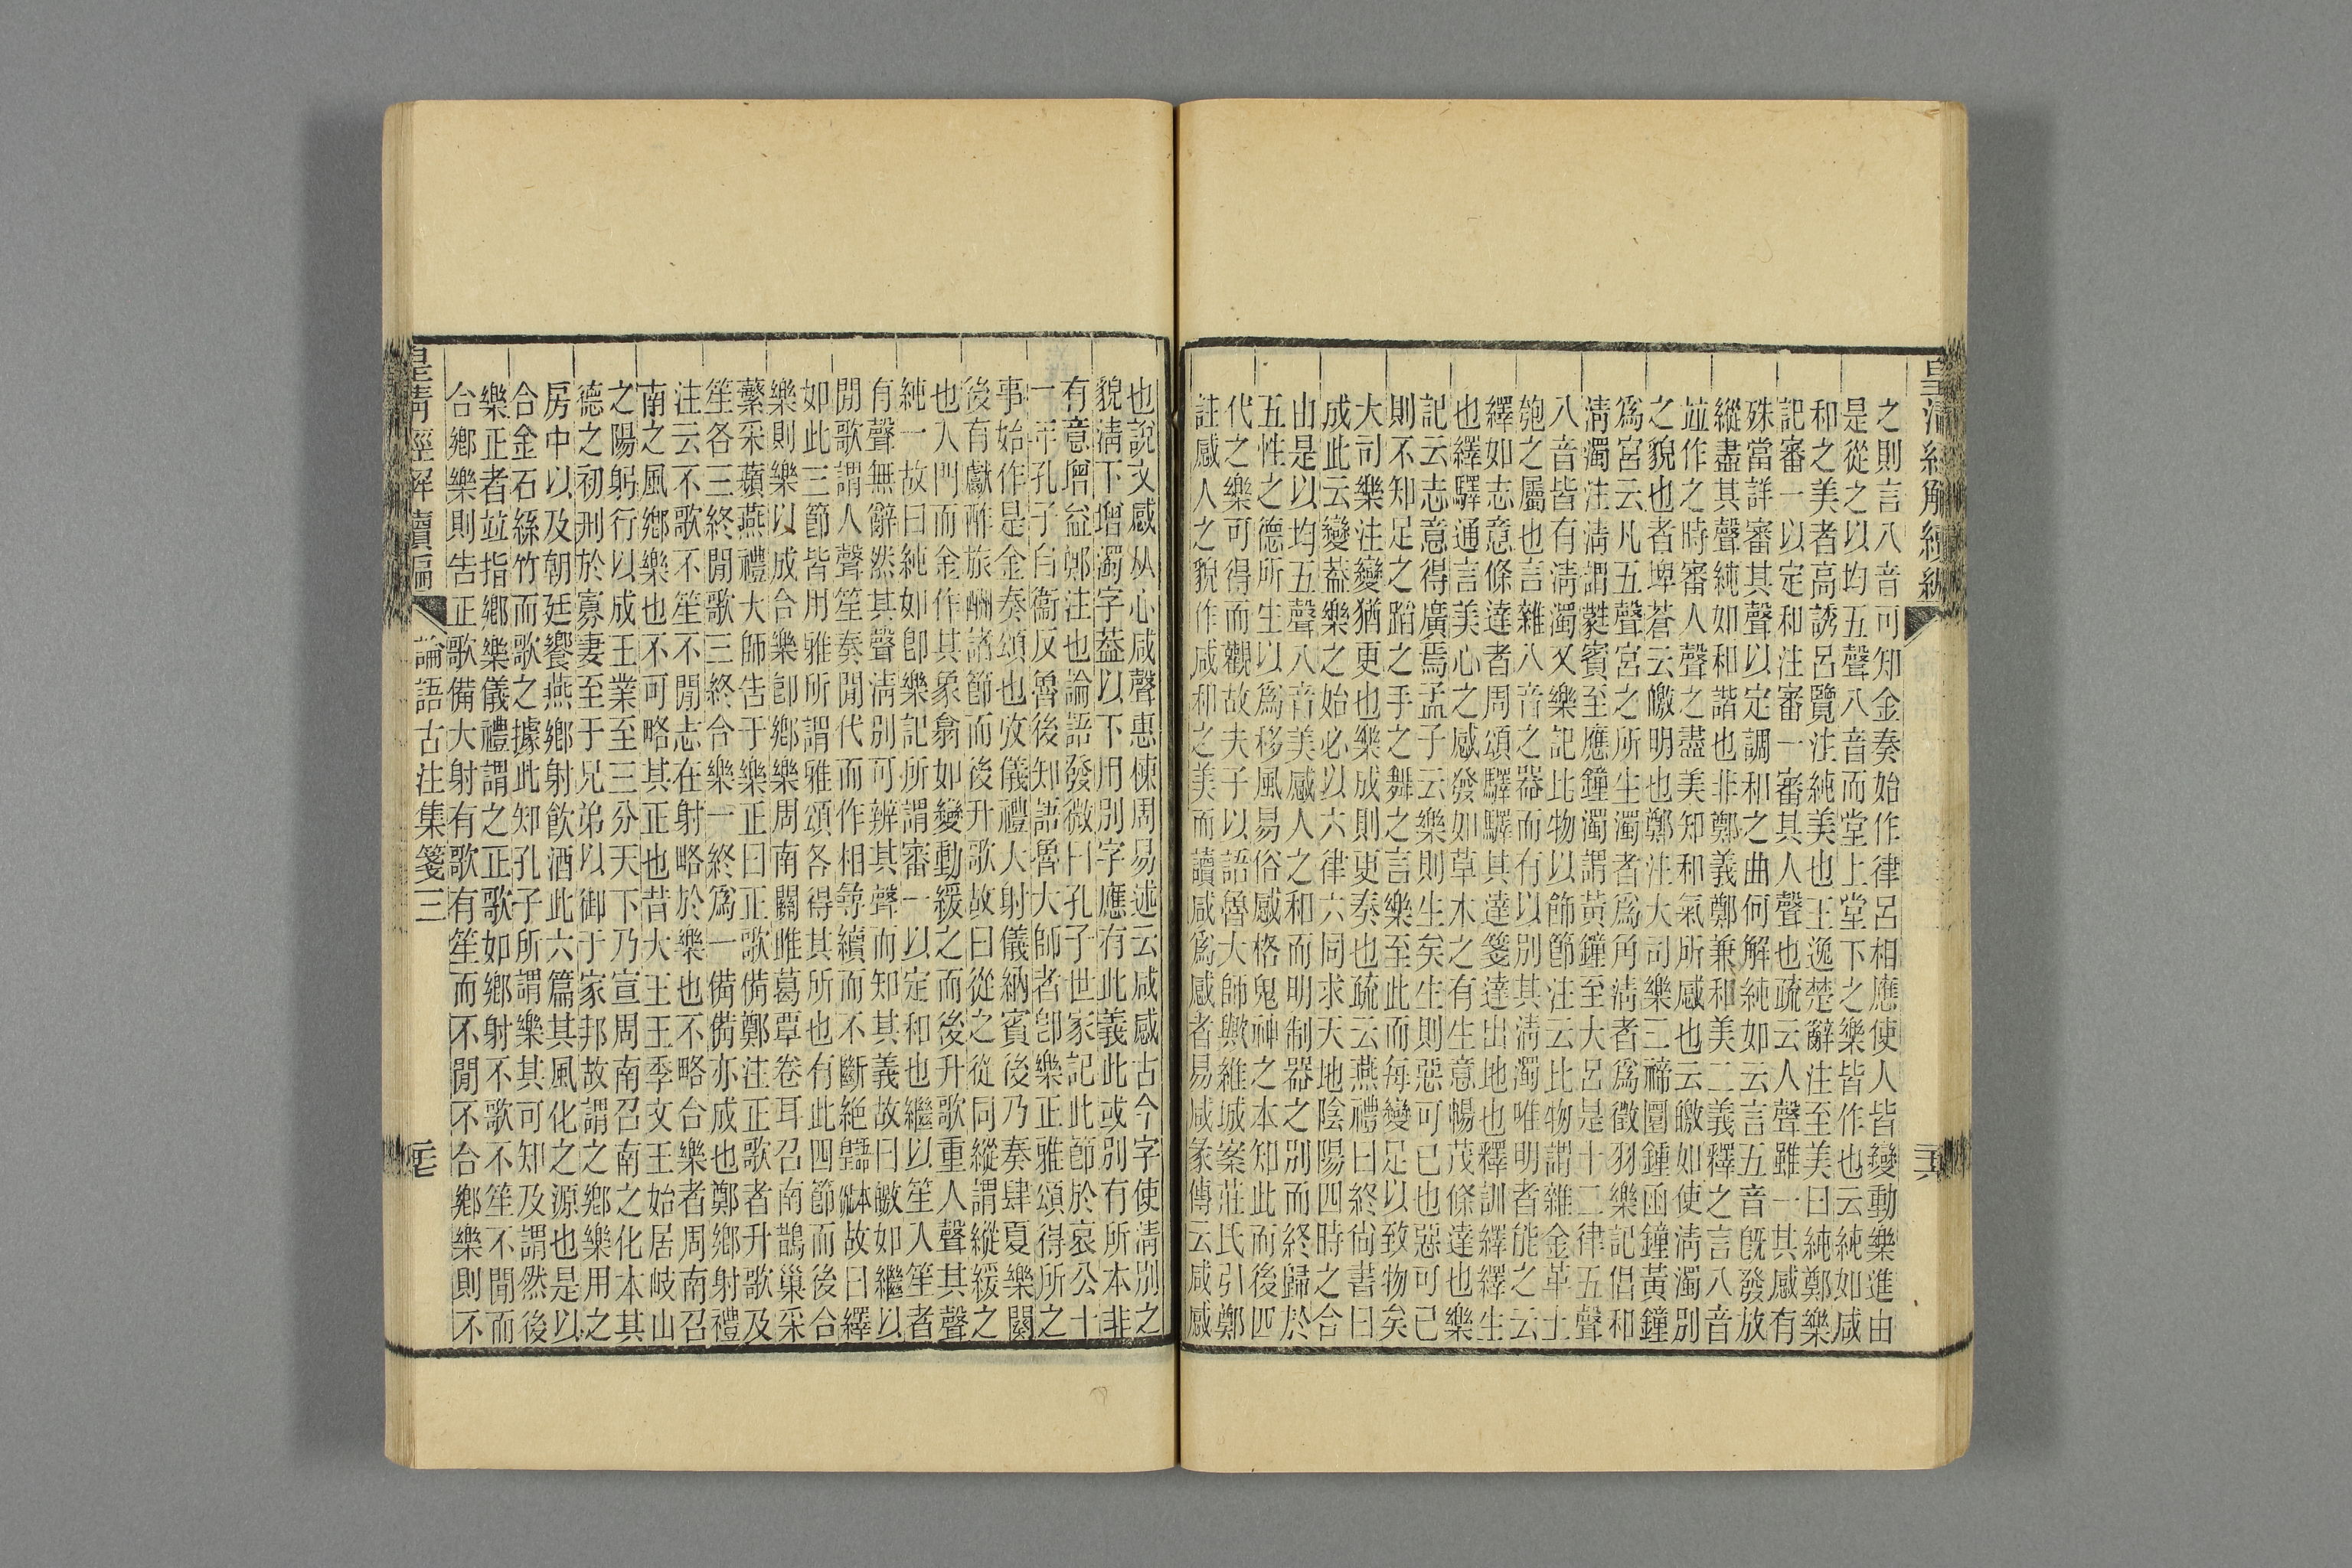 皇清經解續編
之則言八音可知金奏始作律呂相應使人皆變動樂進由
是從之以均五聲八音而堂上堂下之樂皆作也云純如咸
和之美者高誘呂覽注純美也王逸楚辭注至美曰純鄭樂
記審一以定和注審一審其人聲也疏云人聲雖一其感有
殊當詳審其聲以定調和之曲何解純如云言五音旣發放
縱盡其聲純如和諧也非鄭義鄭兼和美二義釋之言八音
竝作之時審人聲之盡美知和氣所感也云皦如使淸濁別
之貌也者埤蒼云皦明也鄭注大司樂三禘圜鍾函鐘黃鐘
爲宮云凡五聲宮之所生濁者爲角淸者爲徵羽樂記倡和
淸濁注淸謂蕤賓至應鐘濁謂黃鐘至大呂是十二律五聲
八音皆有淸濁又樂記比物以飾節注云比物謂雜金革土
匏之屬也言雜八音之器而有以別其淸濁唯明者能之云
繹如志意條達者周頌驛驛其達箋達出地也釋訓繹繹生
也繹驛通言美心之感發如草木之有生意暢茂條達也樂
記云志意得廣焉孟子云樂則生矣生則惡可已也惡可已
則不知足之蹈之手之舞之言樂至此而每變足以致物矣
大司樂注變猶更也樂成則更奏也疏云燕禮曰終尙書曰
成此云變葢樂之始必以六律六同求天地陰陽四時之合
由是以均五聲八音美感人之和而明制器之別而終歸於
五性之德所生以爲移風易俗感格鬼神之本知此而後匹
代之樂可得而觀故夫子以語魯大師歟維城案莊氏引鄭
註感人之貌作咸和之美而讀咸爲感者易咸彖傳云咸感
二六
也說文感从心咸聲惠棟周易述云咸感古今字使淸別之
貌淸下增濁字葢以下用別字應有此義此或別有所本非
有意增益鄭注也論語發微曰孔子世家記此節於哀公十
一年孔子自衞反魯後知語魯大師者卽樂正雅頌得所之
事始作是金奏頌也攷儀禮大射儀納賓後乃奏肆夏樂闋
後有獻酢旅酬諸節而後升歌故曰從之從同縱謂縱緩之
也入門而金作其象翕如變動緩之而後升歌重人聲其聲
純一故曰純如卽樂記所謂審一以定和也繼以笙入笙者
有聲無辭然其聲淸別可辨其聲而知其義故曰皦如繼以
閒歌謂人聲笙奏閒代而作相尋續而不斷絕䚻繇故曰繹
如此三節皆用雅所謂雅頌各得其所也有此四節而後合
樂則樂以成合樂卽鄉樂周南關雎葛覃卷耳召南鵲巢采
蘩采蘋燕禮大師吿于樂正曰正歌備鄭注正歌者升歌及
笙各三終閒歌三終合樂一終爲一備備亦成也鄭鄉射禮
注云不歌不笙不閒志在射略於樂也不略合樂者周南召
南之風鄉樂也不可略其正也昔大王王季文王始居岐山
之陽躬行以成王業至三分天下乃宣周南召南之化本其
德之初刑於寡妻至于兄弟以御于家邦故謂之鄉樂用之
房中以及朝廷饗燕鄉射飮酒此六篇其風化之源也是以
合金石絲竹而歌之據此知孔子所謂樂其可知及謂然後
樂正者竝指鄉樂儀禮謂之正歌如鄉射不歌不笙不閒而
合鄉樂則吿正歌備大射有歌有笙而不閒不合鄉樂則不
皇淸經解續編
論語古注集箋三
二七